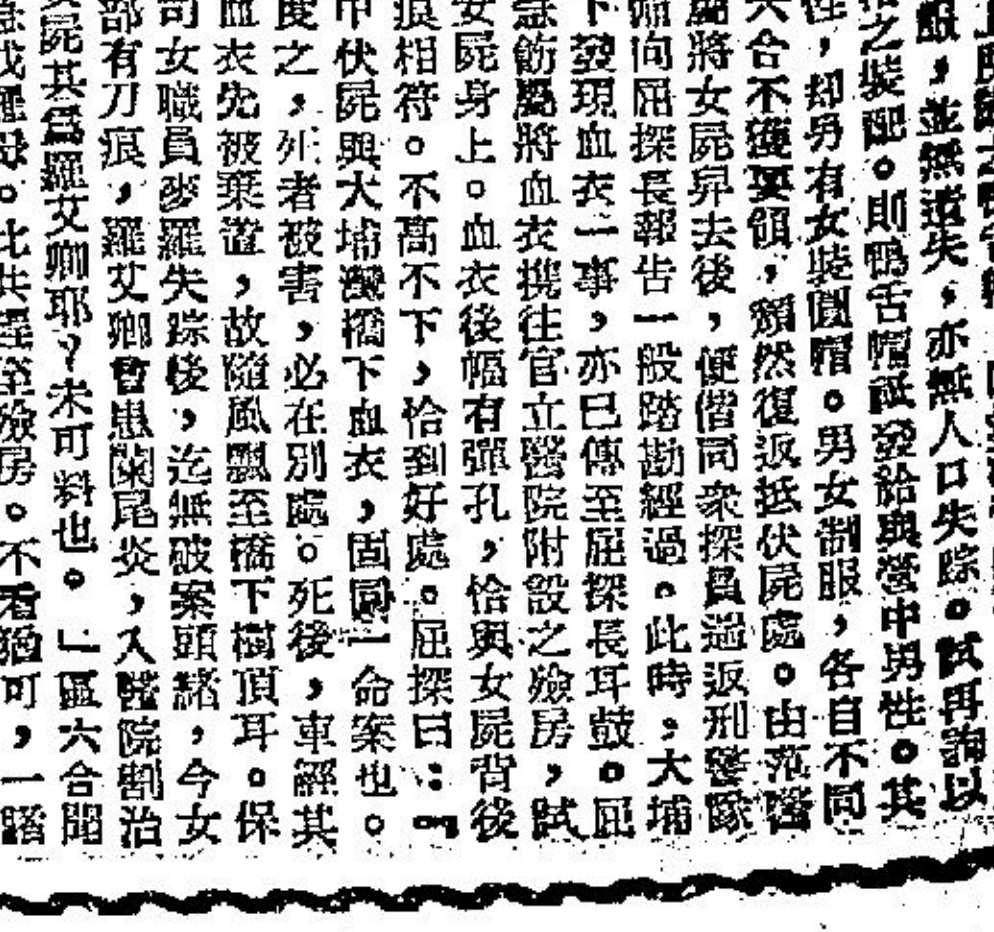 服，並無遺失，亦無人口失踪。試再詢以
之裝配。則鴨舌帽祇發給與營中男性。其
性，却男有女裝圓帽。男女制服，各自不同
六合不獲要領，頹然復返抵伏屍處。由范醫
屬將女屍舁去後，便偕同衆探員遄返刑警隊
向屈探長報告一般踏勘經過。此時，大埔
下發現血衣一事，亦已傳至屈探長耳鼓。屈
急飭屬將血衣携往官立醫院附設之殮房，試
女屍身上。血衣後幅有彈孔，恰與女屍背後
痕相符。不高不下，恰到好處。屈探曰：「
中伏屍與大埔橋下血衣，固同一命案也。
度之，死者被害，必在別處。死後，車經其
血衣先被棄置，故隨風飄至橋下樹頂耳。保
司女職員麥羅失踪後，迄無破案頭緒，今女
部有刀痕，羅艾卿曾患闌尾炎，入醫院割治
屍其爲羅艾卿耶？未可料也。」區六合聞
。此共逕至殮房。不看猶可，一睹